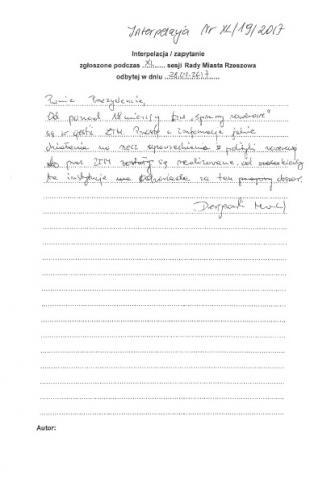 Interpelacja Nr XL/19/2017
Interpelacja / zapytanie
zgłoszone podczas XL sesji Rady Miasta Rzeszowa
odbytej w dniu 28.02.2017
Panie Prezydencie,
Od ponad miesięcy tzw "sprawy rowerowe"
są w gestii ZTM. Proszę o informację jakie
działania na rzecz polityki rowerowej
przez ZTM zostały są realizowane od
ta instytucja odpowiada za ten obszar.
Autor: